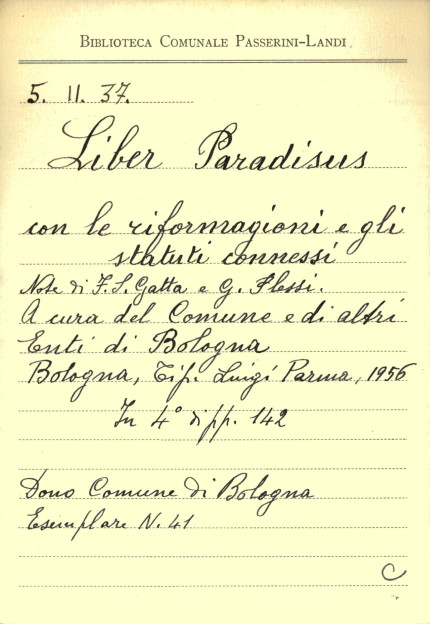 BIBLIOTECA COMUNALE PASSERINI-LANDI
5. II. 37.
Liber Paradisus
con le riformagioni e gli
statuti connessi
Note di F. S. Gatta e G. Plessi.
A cura del Comune e di altri
Enti di Bologna
Bologna, Tip. Luigi Parma, 1956
In 4° di pp. 142
Dono Comune di Bologna
Esemplare N. 41
C